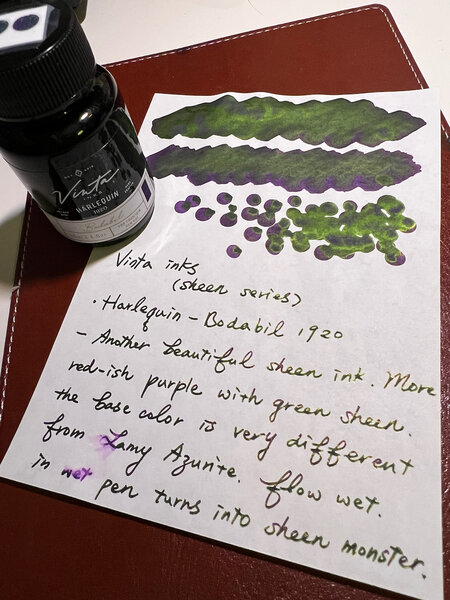 Vinta
INKS
HARLEQUIN
1920
Vinta inks
(sheen series)
· Harlequin - Bodabil 1920
- Another beautiful sheen ink. More
red-ish purple with green sheen.
the base color is very different
from Lamy Azurite. flow wet.
in wet pen turns into sheen monster.